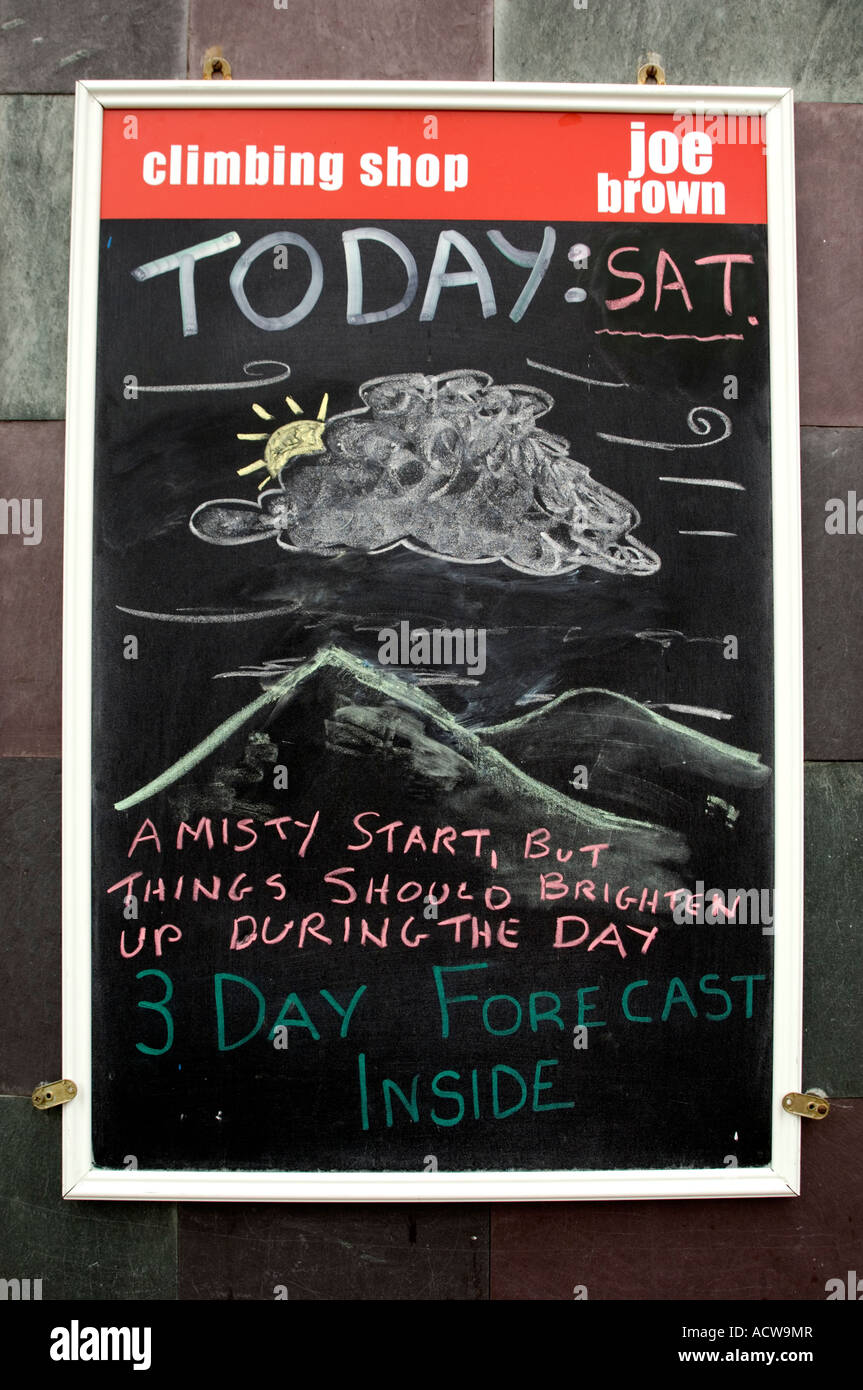 climbing shop
joe
brown
TODAY: SAT.
A MISTY START, BUT
THINGS SHOULD BRIGHTEN
UP DURING THE DAY
3 DAY FORECAST
INSIDE
alamy
Image ID: ACW9MR
www.alamy.com